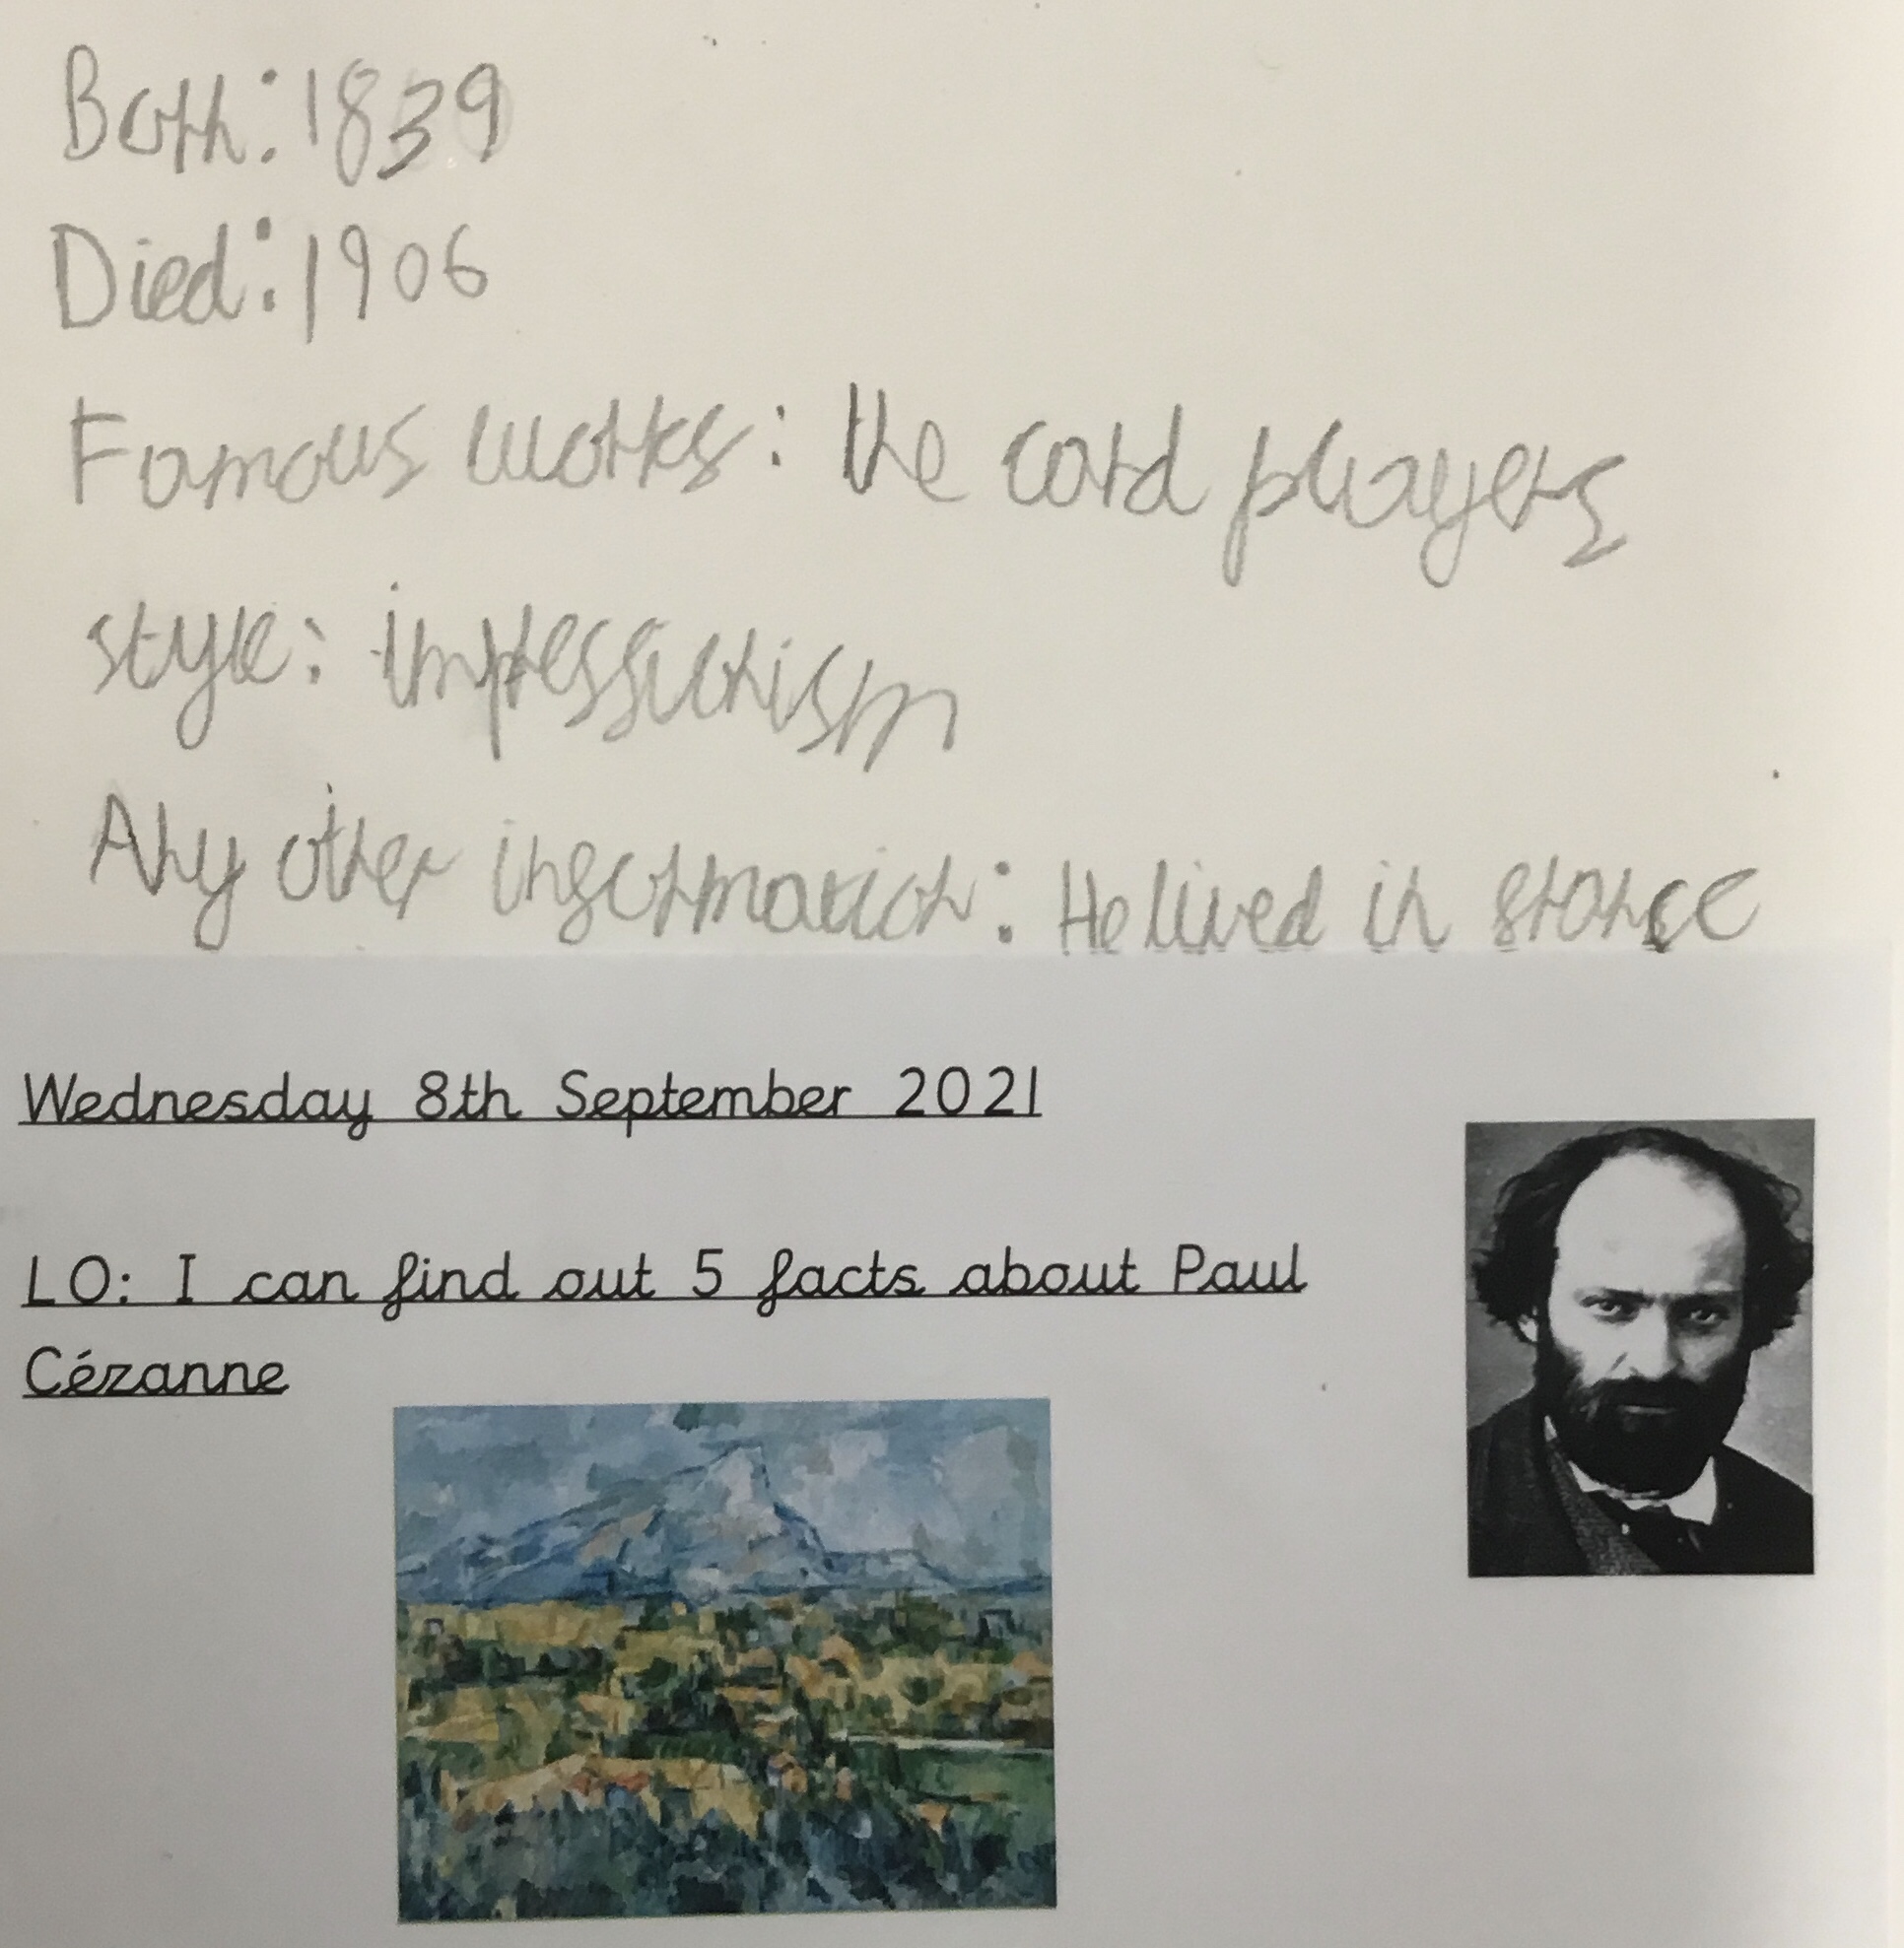 Born: 1839
Died: 1906
Famous works: the card players
style: impressionism
Any other information: He lived in france
Wednesday 8th September 2021
LO: I can find out 5 facts about Paul
Cézanne